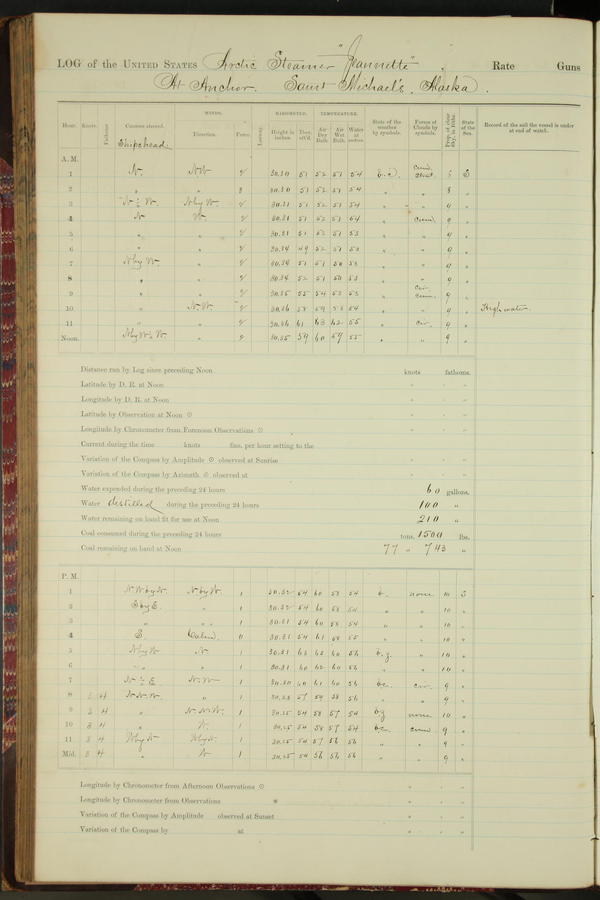 LOG of the UNITED STATES Arctic Steamer "Jeannette", Rate Guns
At Anchor. Saint Michael's, Alaska.
Hour. Knots. Fathoms. Courses steered. WINDS. Direction. Force. Leeway. BAROMETER. Height in inches. Ther. att'd. TEMPERATURE. Air Dry Bulb. Air Wet Bulb. Water at surface. State of the weather by symbols. Forms of Clouds by symbols. Prop. of clear sky, in 10ths. State of the Sea. Record of the sail the vessel is under at end of watch.
Ship's head
A. M.
1 N. NW 2 30.30 51 52 51 54 b.c. S
2 " " 2 30.30 51 52 51 54 " " 8 "
3 N ½ W. N by W. 2 30.31 51 52 51 54 " " 9 "
4 N W. 2 30.31 51 52 51 54 " Cum. 9 "
5 " " 2 30.31 51 52 51 53 " " 9 "
6 " " 2 30.34 49 52 51 53 " " 9 "
7 N by W. " 2 30.34 51 51 50 53 " " 9 "
8 " " 2 30.34 52 51 50 53 " " 9 "
9 " " 2 30.35 55 54 52 53 " Cir. Cum. 9 "
10 " N.W. 2 30.36 58 59 54 " " 9 " High water
11 " " 2 30.36 61 63 62 55 " Cir. 9 "
Noon. N by W ½ W. " 2 30.35 59 60 59 55 " " 9 "
Distance run by Log since preceding Noon knots fathoms.
Latitude by D. R. at Noon ° ' "
Longitude by D. R. at Noon ° ' "
Latitude by Observation at Noon ☉ ° ' "
Longitude by Chronometer from Forenoon Observations ☉ ° ' "
Current during the time knots fms. per hour setting to the
Variation of the Compass by Amplitude ☉ observed at Sunrise ° ' "
Variation of the Compass by Azimuth ☉ observed at ° ' "
Water expended during the preceding 24 hours 60 gallons.
Water distilled during the preceding 24 hours 100 "
Water remaining on hand fit for use at Noon 210 "
Coal consumed during the preceding 24 hours tons. 1500 lbs.
Coal remaining on hand at Noon 77 " 743 "
P. M.
1 N W by W. N by W. 1 30.32 54 60 58 54 b. none 10 S
2 S by E. " 1 30.32 54 60 58 54 " " 10 "
3 " " 1 30.31 54 60 58 54 " " 10 "
4 E. Calm. 0 30.31 54 61 58 55 " " 10 "
5 N by W N. 1 30.31 62 62 60 56 b.z. " 10 "
6 " " 1 30.31 60 62 60 56 " " 10 "
7 N ½ E. N.W. 1 30.30 60 61 60 56 bc. cir. 9 "
8 3 4 N.N.W. " 1 30.28 57 59 58 56 " " 9 "
9 3 4 " N.N.W. 1 30.25 54 58 57 54 bz none 10 "
10 3 4 " N. 1 30.25 54 58 57 54 bc. cum 9 "
11 3 4 N by W N by W. 1 30.25 54 57 56 56 " " 9 "
Mid. 3 4 " N 1 30.25 54 56 56 56 " " 9 "
Longitude by Chronometer from Afternoon Observations ☉ ° ' "
Longitude by Chronometer from Observations * ° ' "
Variation of the Compass by Amplitude observed at Sunset ° ' "
Variation of the Compass by at ° ' "